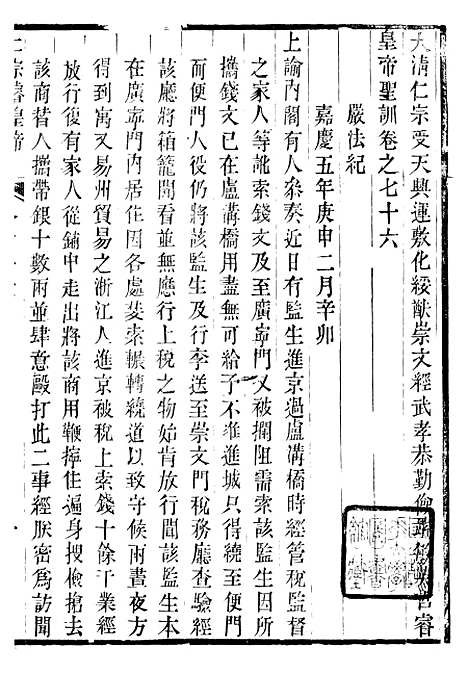 大清仁宗受天興運敷化綏猷崇文經武孝恭勤儉端敏英哲睿
皇帝聖訓卷之七十六
嚴法紀
嘉慶五年庚申二月辛卯
上諭內閣有人叅奏近日有監生進京過盧溝橋時經管稅監督
之家人等訛索錢文及至廣寧門又被攔阻需索該監生因所
攜錢文已在盧溝橋用盡無可給予不准進城只得繞至便門
而便門人役仍將該監生及行李送至崇文門稅務廳查驗經
該廳將箱籠開看並無應行上稅之物始肯放行聞該監生本
在廣寧門內居住因各處婪索輾轉繞道以致守候兩晝夜方
得到寓又易州貿易之浙江人進京被稅上索錢十餘千業經
放行復有家人從鋪中走出將該商用鞭擰住遍身搜儉搶去
該商替人攜帶銀十數兩並肆意毆打此二事經朕密為訪聞
仁宗睿皇帝